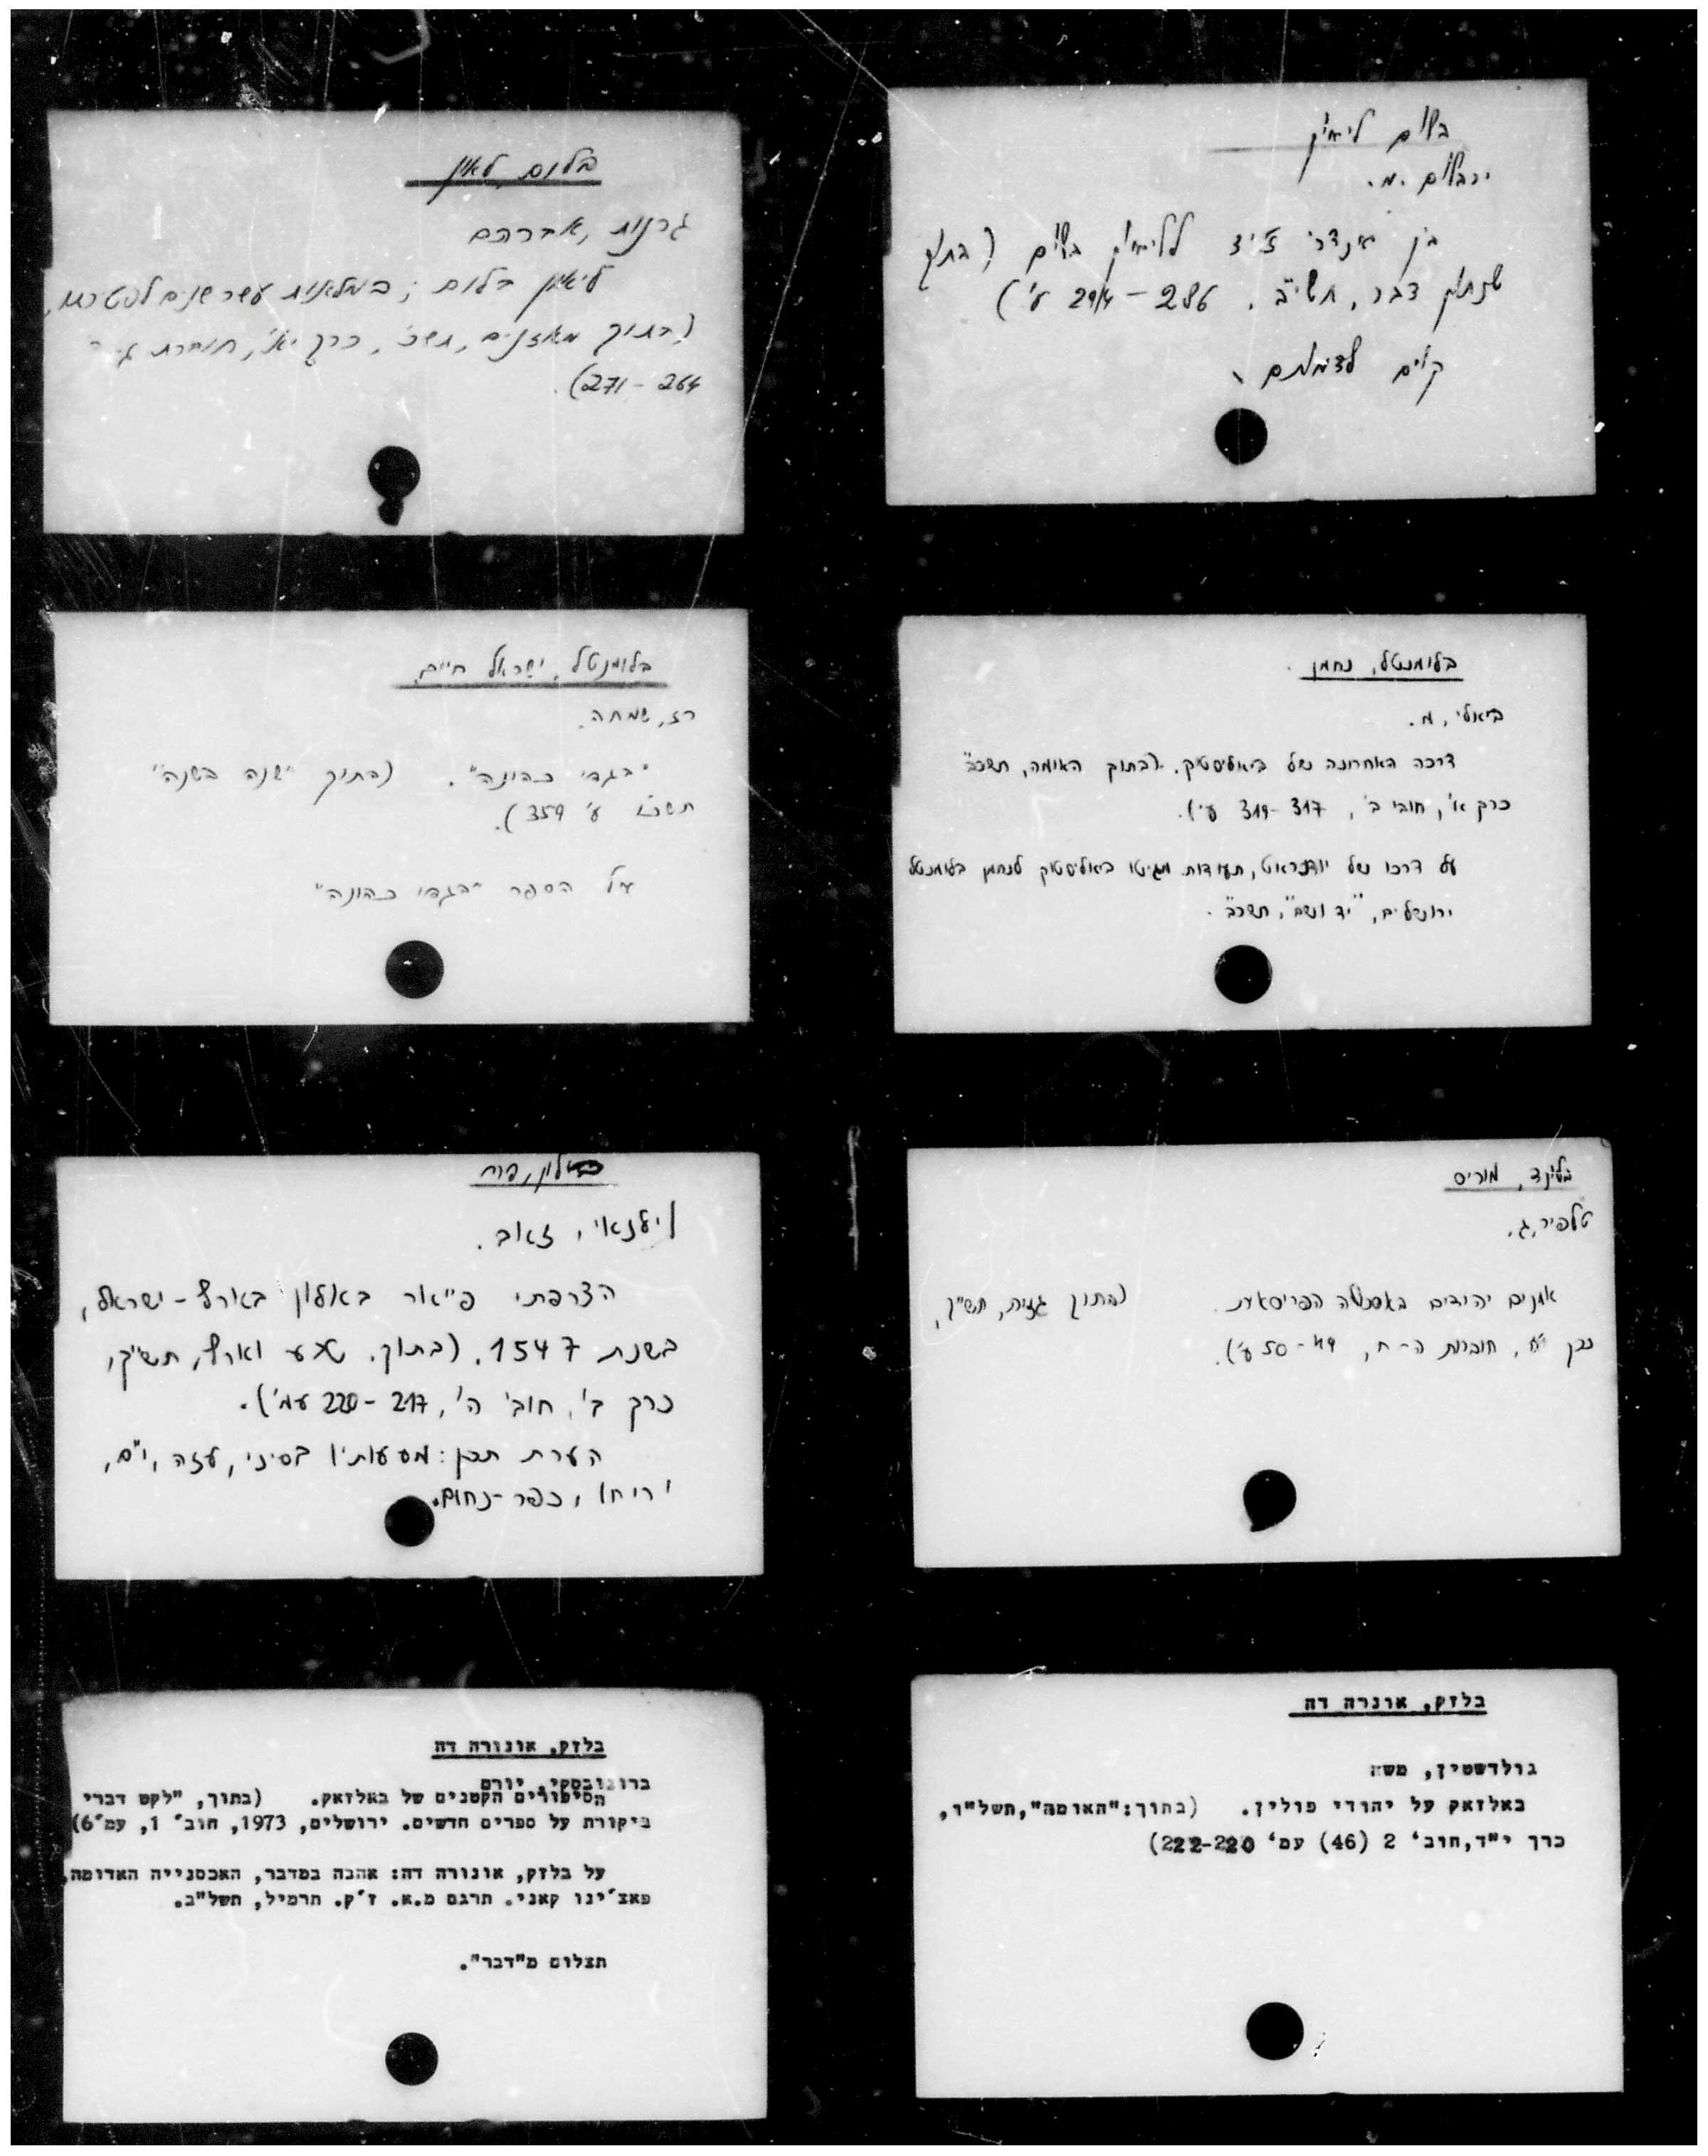 בלום ליאון
ירבלום .מ.
בין אנדרי ז'יד לליאון בלום (בתוך
שנתון דבר, תשי"ב. 286 – 294 ע')
קוים לדמותם
בלום, לאון
גרנות, אברהם
ליאון בלום ; במלאות עשר שנים לפטירתו,
(בתוך מאזנים, תש"כ, כרך יא', חוברת
264 – 271).
בלומנטל, נחמן.
ביאלי, מ.
דרכה האחרונה של ביאליסטוק. (בתוך האומה, תשכ"ב
כרך א', חוב' ב', 317–319 ע').
על דרכו של יודנראט, תעודות מגיטו ביאליסטוק לנחמן בלומנטל
ירושלים, "יד ושם", תשכ"ב.
בלומנטל, ישראל חיים.
רז, שמחה.
"בגדי כהונה". (בתוך "שנה בשנה"
תשכ"ו ע' 359).
על הספר "בגדי כהונה"
בלינד, מוריס
טלפיר, ג.
אמנים יהודים באסכולה הפריסאית. (בתוך גזית, תש"ך,
כרך י"ח, חוברות ה-ח, 49 – 50 ע').
וילנאי, זאב.
הצרפתי פייאר באלון בארץ-ישראל,
בשנת 1547. (בתוך, טבע וארץ, תש"ך,
כרך ב', חוב' ה', 217 – 220 עמ').
הערת תכן: מסעותיו בסיני, עזה, י"ם,
יריחו, כפר-נחום.
בלזק, אונרה דה
גולדשטין, משה
באלזאק על יהודי פולין. (בתוך:"האומה",תשל"ו,
כרך י"ד,חוב' 2 (46) עמ' 220-222)
בלזק, אונורה דה
ברונובסקי, יורם
הסיפורים הקטנים של באלזאק. (בתוך, "לקט דברי
ביקורת על ספרים חדשים. ירושלים, 1973, חוב' 1, עמ'6)
על בלזק, אונורה דה: אהבה במדבר, האכסנייה האדומה,
פאצ'ינו קאני. תרגם מ.א. ז'ק. תרמיל, תשל"ב.
תצלום מ"דבר".